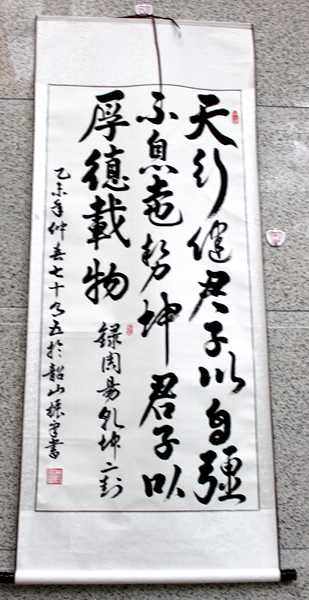 天行健君子以自彊
不息地势坤君子以
厚德載物
錄周易乾坤二卦
乙未年仲春七十五於韶山書